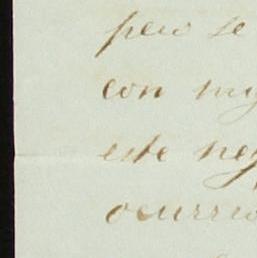 pero se
con my
este neg
ocurrio